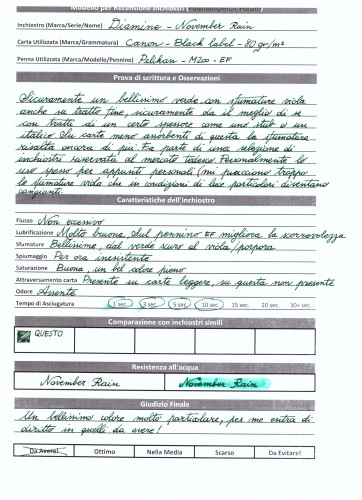 Modello per Recensione Inchiostri Fountainpen.it Forum
Inchiostro (Marca/Serie/Nome) Diamine - November Rain
Carta Utilizzata (Marca/Grammatura) Canon - Black label - 80 gr/m²
Penna Utilizzata (Marca/Modello/Pennino) Pelikan - M200 - EF
Prova di scrittura e Osservazioni
Sicuramente un bellissimo verde con sfumature viola
anche su tratto fine, sicuramente da il meglio di se
con tratti di un certo spessore come uno stub o un
italico. Su carte meno assorbenti di questa la sfumatura
risalta ancora di più. Fa parte di una selezione di
inchiostri riservata al mercato tedesco. Personalmente lo
uso spesso per appunti personali (mi piacciono troppo
le sfumature viola che in condizioni di luce particolari diventano
cangianti.
Caratteristiche dell'inchiostro
Flusso Non eccessivo
Lubrificazione Molto buona. Sul pennino EF migliora la scorrevolezza
Sfumature Bellissime, dal verde scuro al viola/porpora
Spiumaggio Per ora inesistente
Saturazione Buona, un bel colore pieno
Attraversamento carta Presente su carte leggere, su questa non presente
Odore Assente
Tempo di Asciugatura 1 sec. 3 sec. 5 sec. 10 sec. 15 sec. 20 sec. 30+ sec.
Comparazione con inchiostri simili
QUESTO
Resistenza all'acqua
November Rain November Rain
Giudizio Finale
Un bellissimo colore molto particolare, per me entra di
diritto in quelli da avere!
Da Avere! Ottimo Nella Media Scarso Da Evitare!